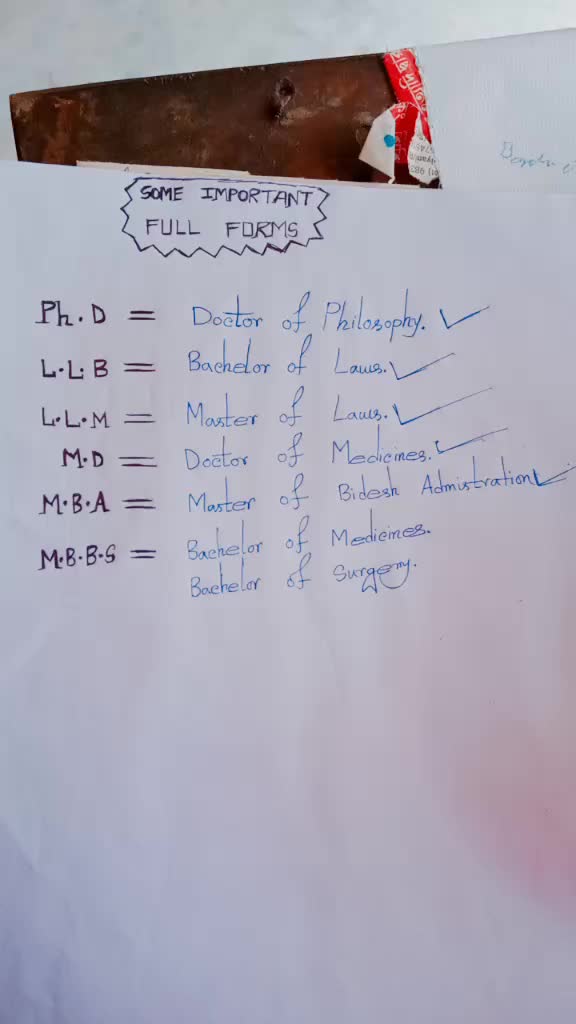 SOME IMPORTANT
FULL FORMS
Ph.D = Doctor of Philosophy.
L.L.B = Bachelor of Laws.
L.L.M = Master of Laws.
M.D = Doctor of Medicines.
M.B.A = Master of Bidesh Admistration
M.B.B.S = Bachelor of Medicines.
Bachelor of Surgery.